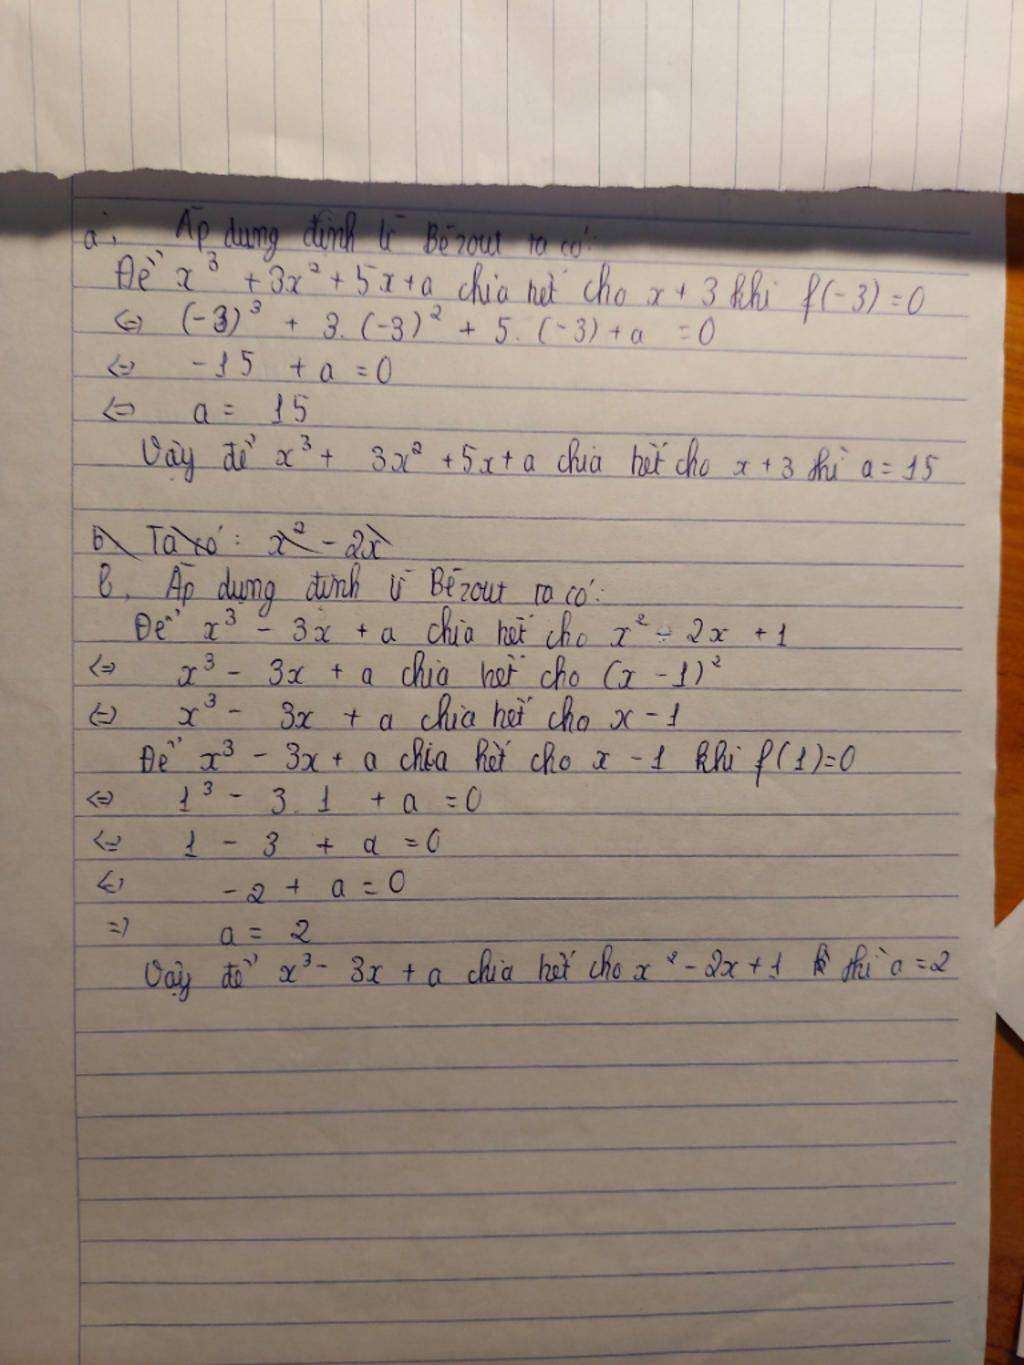 a, Áp dụng định lí Bézout ta có:
Để x³ + 3x² + 5x + a chia hết cho x + 3 khi f(-3) = 0
⇔ (-3)³ + 3. (-3)² + 5. (-3) + a = 0
⇔ -15 + a = 0
⇔ a = 15
Vậy để x³ + 3x² + 5x + a chia hết cho x + 3 thì a = 15
b, Ta có: x² - 2x
b, Áp dụng định lí Bézout ta có:
Để x³ - 3x + a chia hết cho x² - 2x + 1
⇔ x³ - 3x + a chia hết cho (x - 1)²
⇔ x³ - 3x + a chia hết cho x - 1
Để x³ - 3x + a chia hết cho x - 1 khi f(1) = 0
⇔ 1³ - 3. 1 + a = 0
⇔ 1 - 3 + a = 0
⇔ -2 + a = 0
⇒ a = 2
Vậy để x³ - 3x + a chia hết cho x² - 2x + 1 thì a = 2